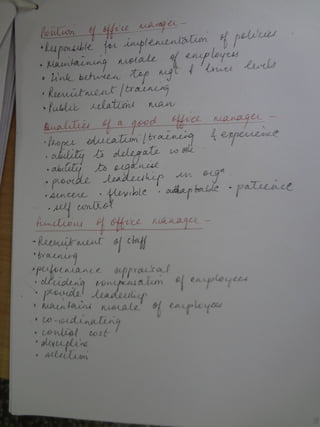 Position of office manger -
• Responsible for implementation of policies
• Maintaining morale of employees
• Link between top mgt & lower levels
• Recruitment / training
• Public relations man
Qualities of a good office manager -
• Proper education / training & experience
• ability to delegate work
• ability to organise
• provide leadership in orgn
• sincere • flexible • adaptable • patience
• self control
Functions of office manager -
• Recruitment of staff
• training
• performance appraisal
• deciding compensation of employees
• provide leadership
• maintains morale of employees
• co-ordinating
• control cost
• discipline
• selection